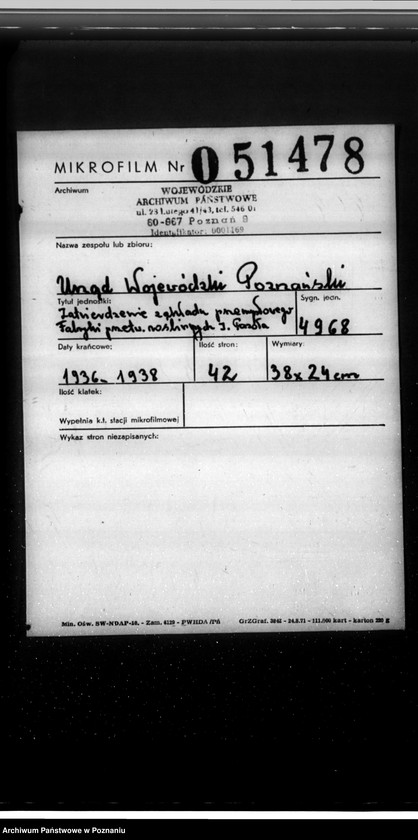 MIKROFILM Nr 0 51478
Archiwum
WOJEWÓDZKIE
ARCHIWUM PAŃSTWOWE
ul. 23 Lutego 41/43, tel. 546 0
60-967 Poznań 9
Identyfikator: 0001169
Nazwa zespołu lub zbioru:
Urząd Wojewódzki Poznański
Tytuł jednostki:
Sygn. jedn.
Zatwierdzenie zakładu przemysłowego
Fabryki przetw. roślinnych J.
4968
Daty krańcowe:
Ilość stron:
Wymiary:
1936-1938
42
38x24cm
Ilość klatek:
Wypełnia k.t. stacji mikrofilmowej
Wykaz stron niezapisanych:
Min. Ośw. SW-NDAP-16. - Zam. - PWHDA /Pń
GrZGraf. - 24.5.71 - 111.000 kart - karton 220 g
Archiwum Państwowe w Poznaniu